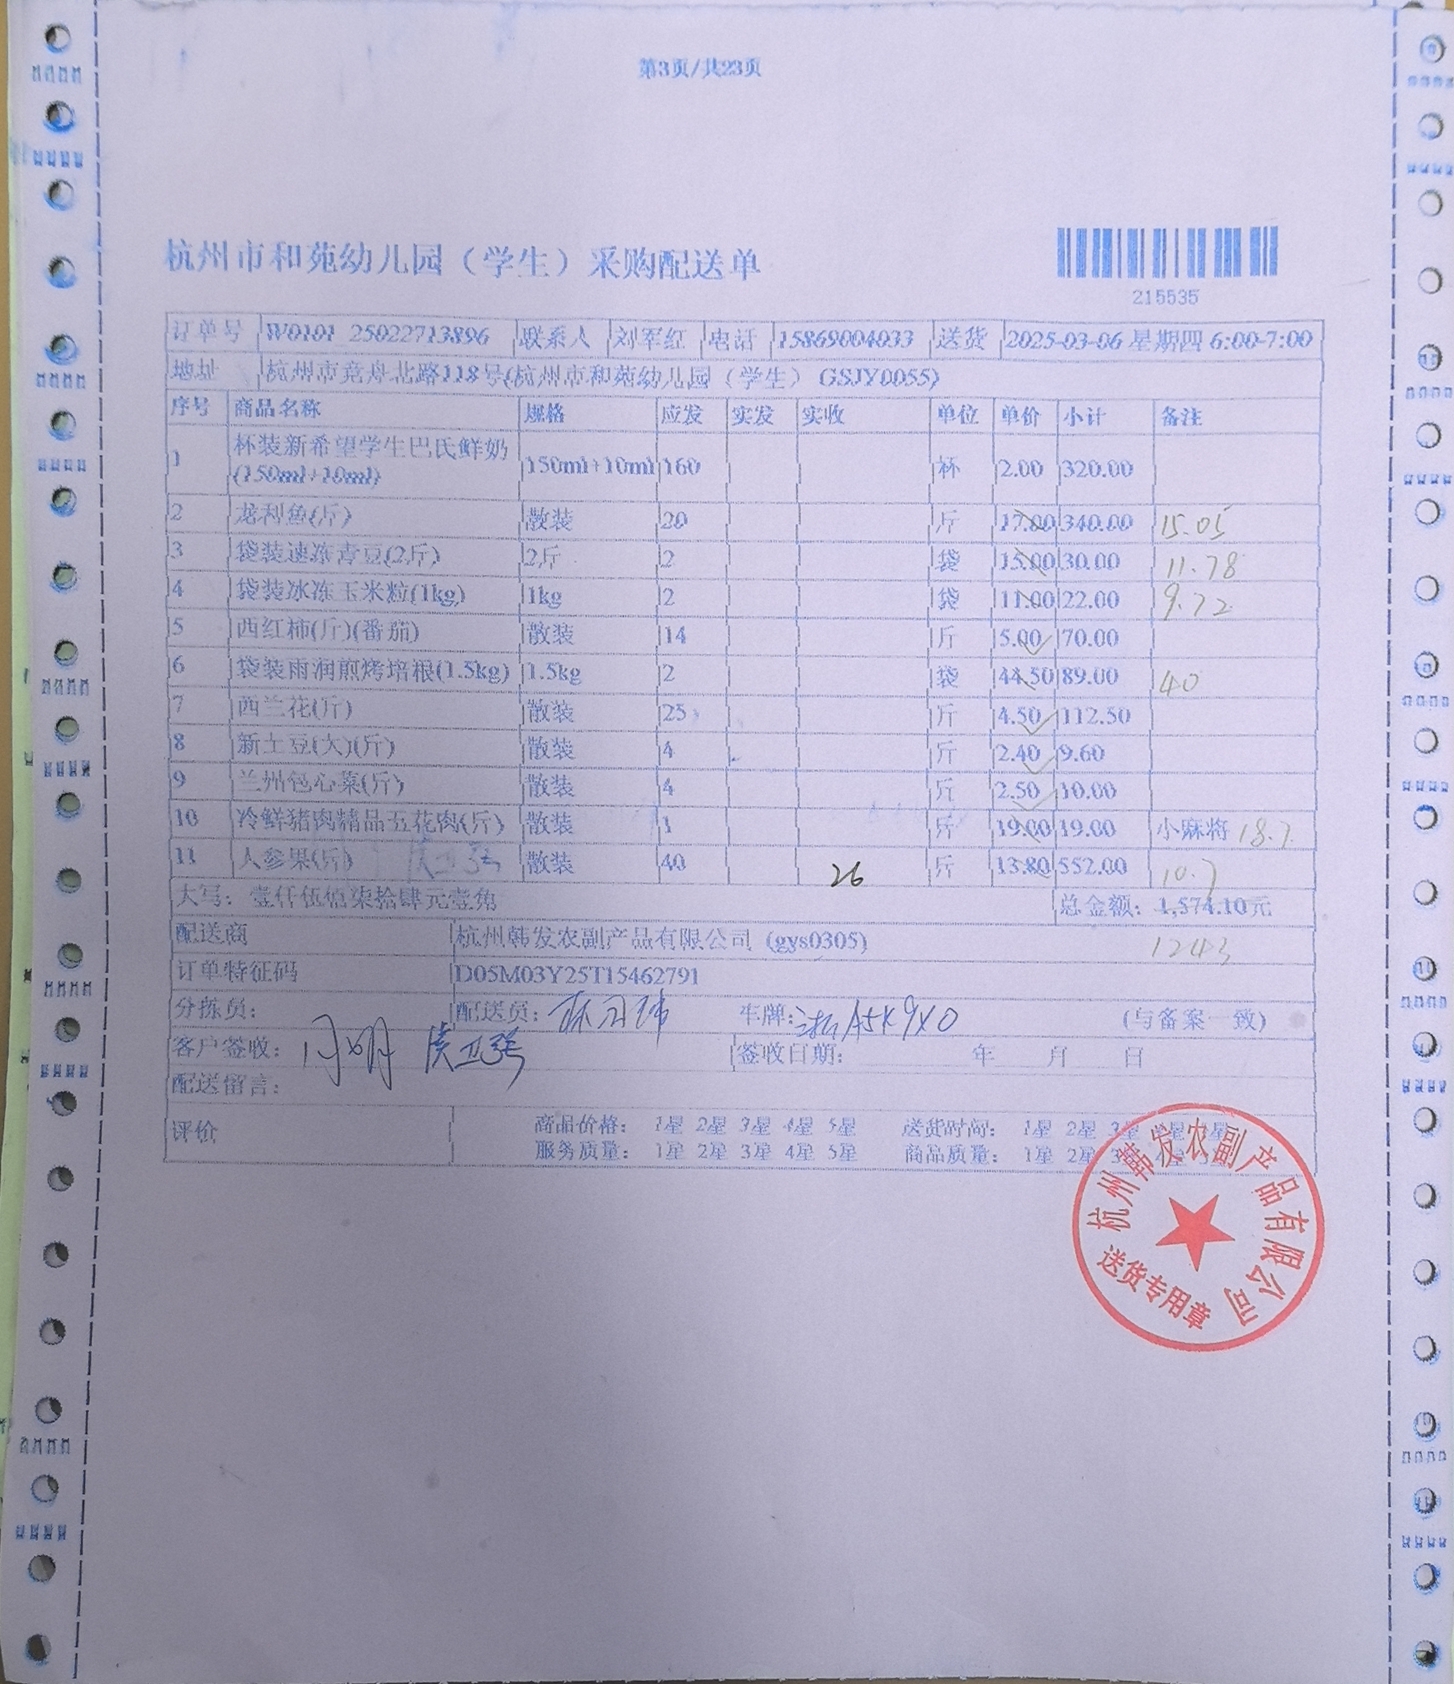 第3页/共23页
杭州市和苑幼儿园（学生）采购配送单
215535
订单号 W0101 25022713896 联系人 刘军红 电话 15869004033 送货 2025-03-06 星期四 6:00-7:00
地址 杭州市竞舟北路118号(杭州市和苑幼儿园（学生） GSJY0055)
序号 商品名称 规格 应发 实发 实收 单位 单价 小计 备注
1 杯装新希望学生巴氏鲜奶(150ml+10ml) 150ml+10ml 160 杯 2.00 320.00
2 龙利鱼(斤) 散装 20 斤 17.00 340.00 15.05
3 袋装速冻青豆(2斤) 2斤 2 袋 15.00 30.00 11.78
4 袋装冰冻玉米粒(1kg) 1kg 2 袋 11.00 22.00 9.72
5 西红柿(斤)(番茄) 散装 14 斤 5.00 70.00
6 袋装雨润煎烤培根(1.5kg) 1.5kg 2 袋 44.50 89.00 40
7 西兰花(斤) 散装 25 斤 4.50 112.50
8 新土豆(大)(斤) 散装 4 斤 2.40 9.60
9 兰州包心菜(斤) 散装 4 斤 2.50 10.00
10 冷鲜猪肉精品五花肉(斤) 散装 1 斤 19.00 19.00 小麻将 18.7
11 人参果(斤) 散装 40 26 斤 13.80 552.00 10.7
大写：壹仟伍佰柒拾肆元壹角 总金额：1,574.10元
1243
配送商 杭州韩发农副产品有限公司 (gys0305)
订单特征码 D05M03Y25T15462791
分拣员： 配送员： 车牌：浙A5K9X0 (与备案一致)
客户签收： 签收日期： 年 月 日
配送留言：
评价 商品价格： 1星 2星 3星 4星 5星 送货时间： 1星 2星 3星 4星 5星
服务质量： 1星 2星 3星 4星 5星 商品质量： 1星 2星 3星 4星 5星
杭州韩发农副产品有限公司
送货专用章